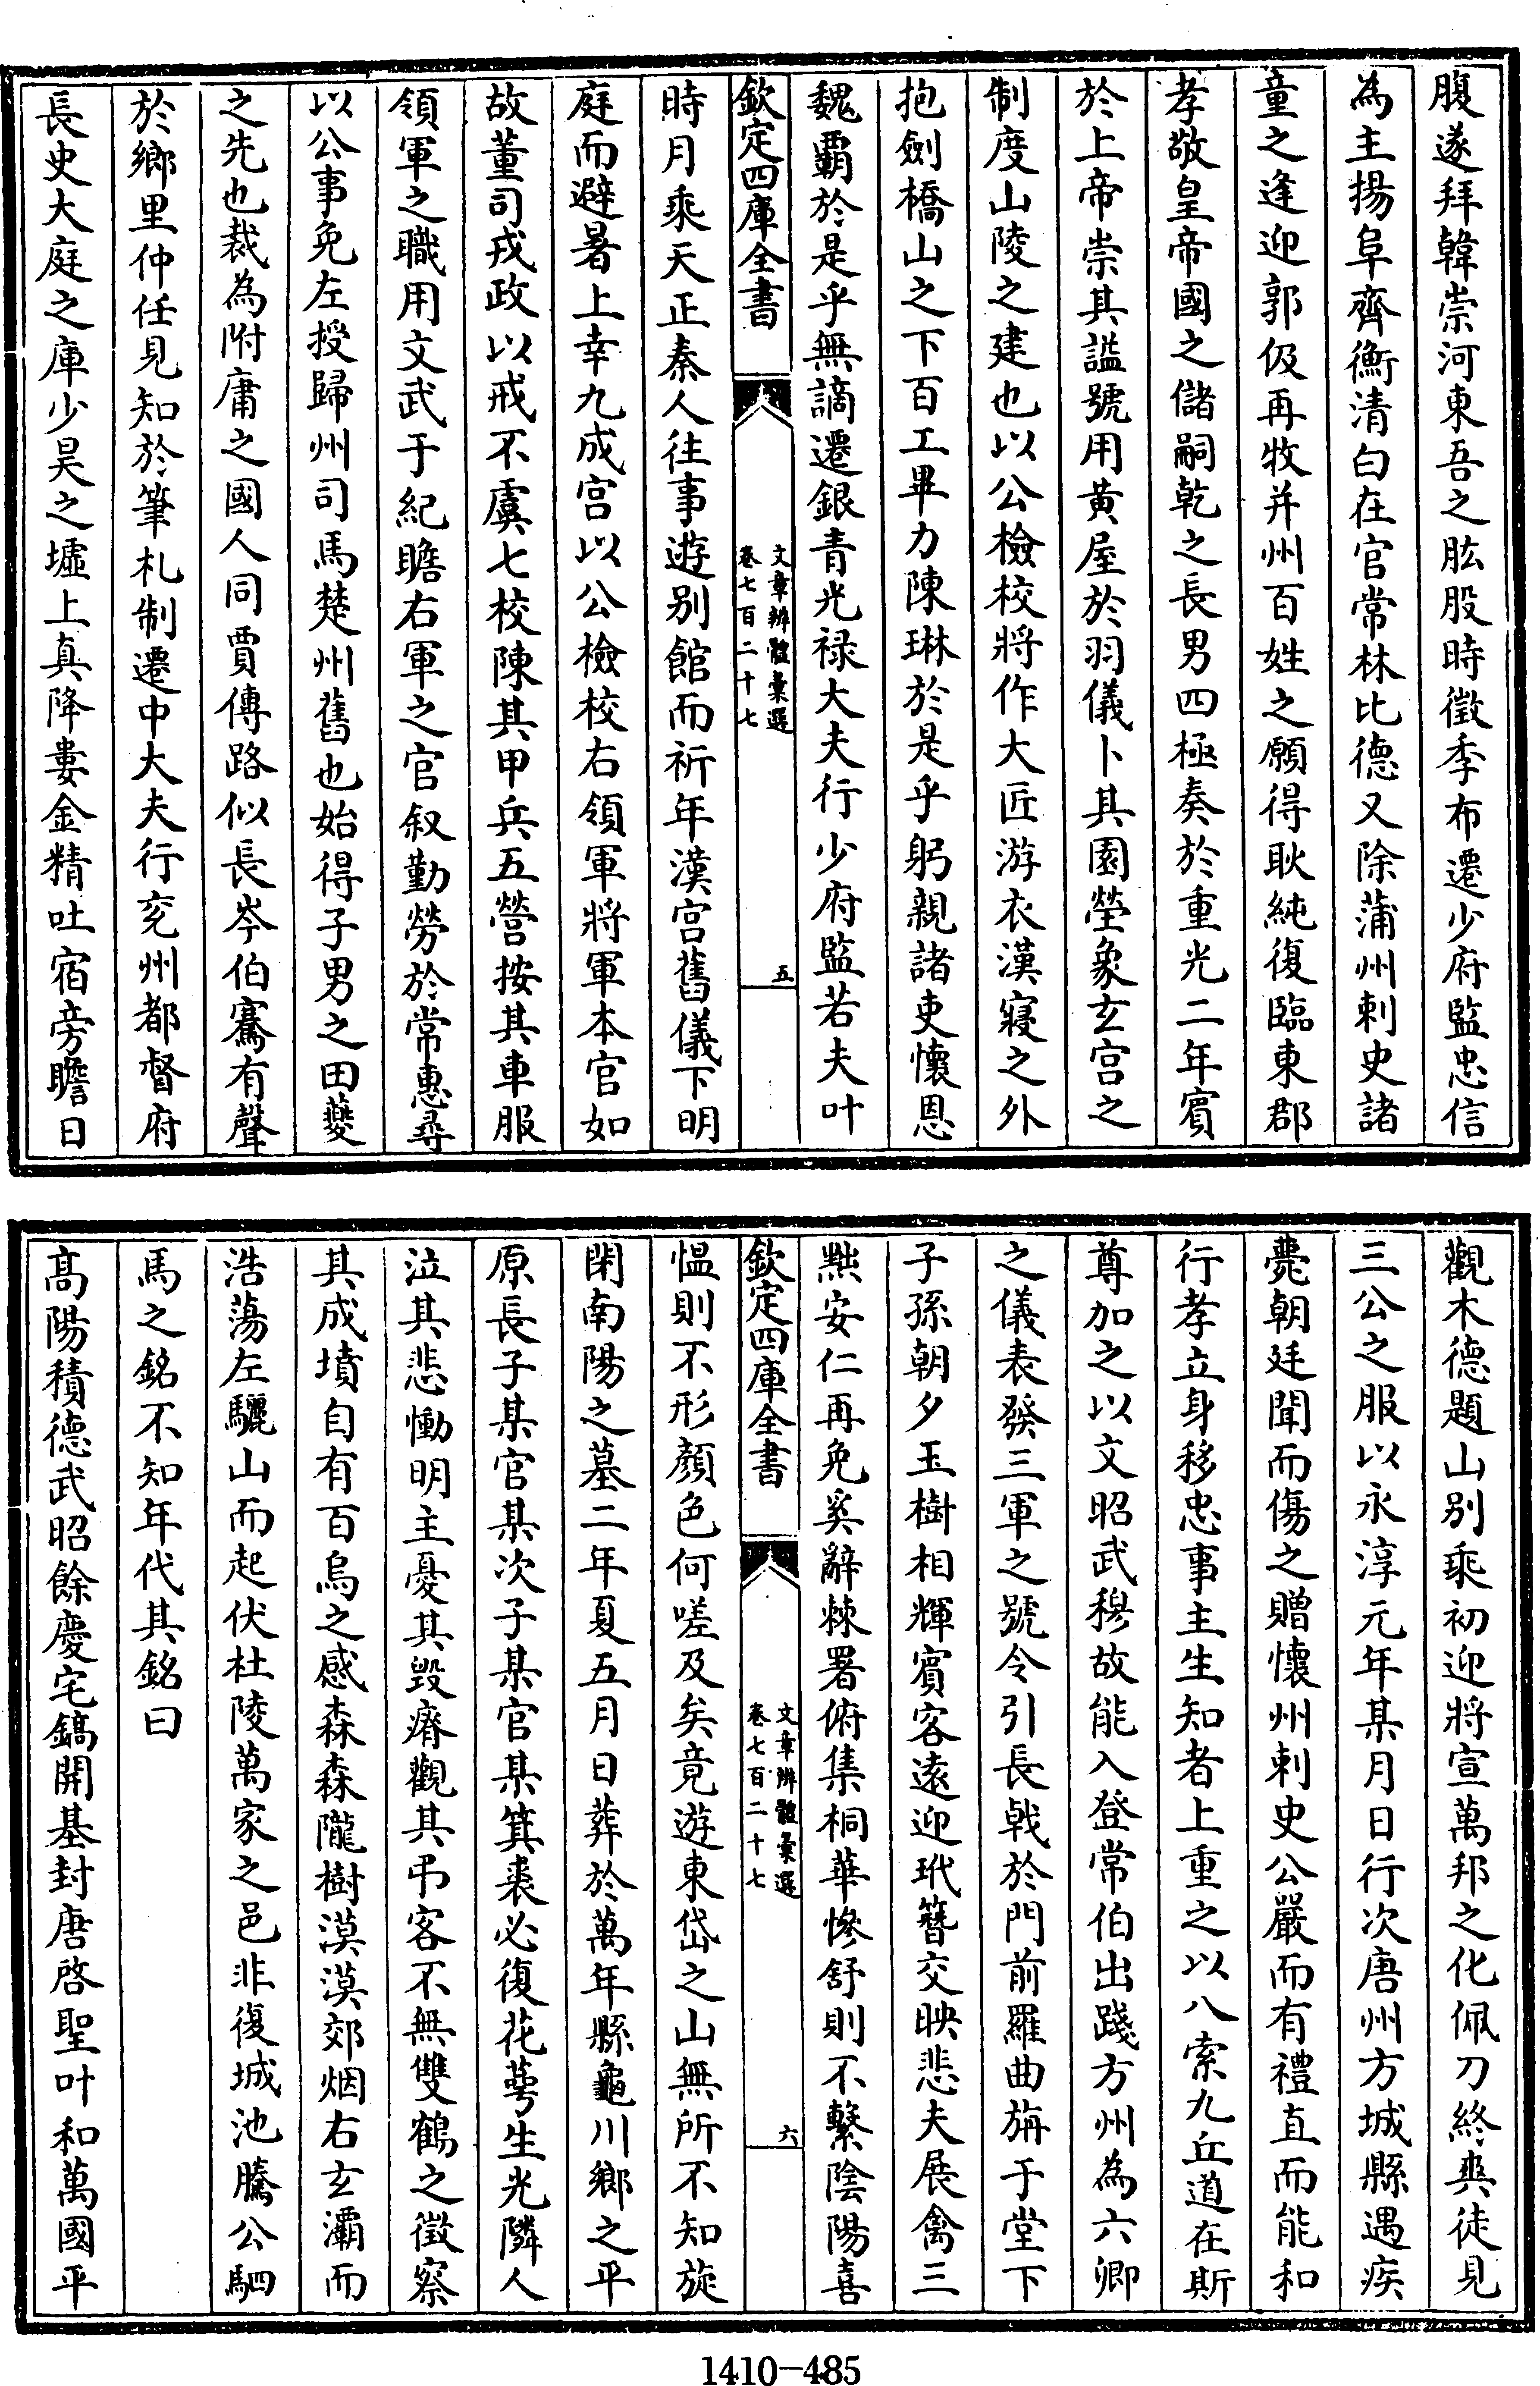 腹遂拜韓崇河東吾之肱股時徵季布遷少府監忠信
為主揚阜齊衡清白在官常林比德又除蒲州刺史諸
童之逢迎郭伋再牧并州百姓之願得耿純復臨東郡
孝敬皇帝國之儲嗣乾之長男四極奏於重光二年賓
於上帝崇其謚號用黄屋於羽儀卜其園塋象玄宫之
制度山陵之建也以公檢校將作大匠游衣漢寢之外
抱劍橋山之下百工畢力陳琳於是乎躬親諸吏懷恩
魏霸於是乎無謫遷銀青光禄大夫行少府監若夫叶
欽定四庫全書
文章辨體彙選
卷七百二十七
五
時月乘天正秦人往事遊别館而祈年漢宫舊儀下明
庭而避暑上幸九成宫以公檢校右領軍將軍本官如
故董司戎政以戒不虞七校陳其甲兵五營按其車服
領軍之職用文武于紀瞻右軍之官叙勤勞於常惠尋
以公事免左授歸州司馬楚州舊也始得子男之田夔
之先也裁為附庸之國人同賈傅路似長岑伯騫有聲
於鄉里仲任見知於筆札制遷中大夫行兖州都督府
長史大庭之庫少昊之墟上真降婁金精吐宿旁瞻日
觀木德題山别乘初迎將宣萬邦之化佩刀終爽徒見
三公之服以永淳元年某月日行次唐州方城縣遇疾
薨朝廷聞而傷之贈懷州刺史公嚴而有禮直而能和
行孝立身移忠事主生知者上重之以八索九丘道在斯
尊加之以文昭武穆故能入登常伯出踐方州為六卿
之儀表發三軍之號令引長戟於門前羅曲旃于堂下
子孫朝夕玉樹相輝賓客逺迎玳簪交映悲夫展禽三
黜安仁再免奚辭棘署俯集桐華慘舒則不繫陰陽喜
欽定四庫全書
文章辨體彙選
卷七百二十七
六
愠則不形顔色何嗟及矣竟遊東岱之山無所不知旋
閉南陽之墓二年夏五月日葬於萬年縣龜川鄉之平
原長子某官某次子某官某箕裘必復花萼生光隣人
泣其悲慟明主憂其毁瘠觀其弔客不無雙鶴之徵察
其成墳自有百烏之感森森隴樹漠漠郊烟右玄灞而
浩蕩左驪山而起伏杜陵萬家之邑非復城池騰公駟
馬之銘不知年代其銘曰
髙陽積德武昭餘慶宅鎬開基封唐啓聖叶和萬國平
1410-485